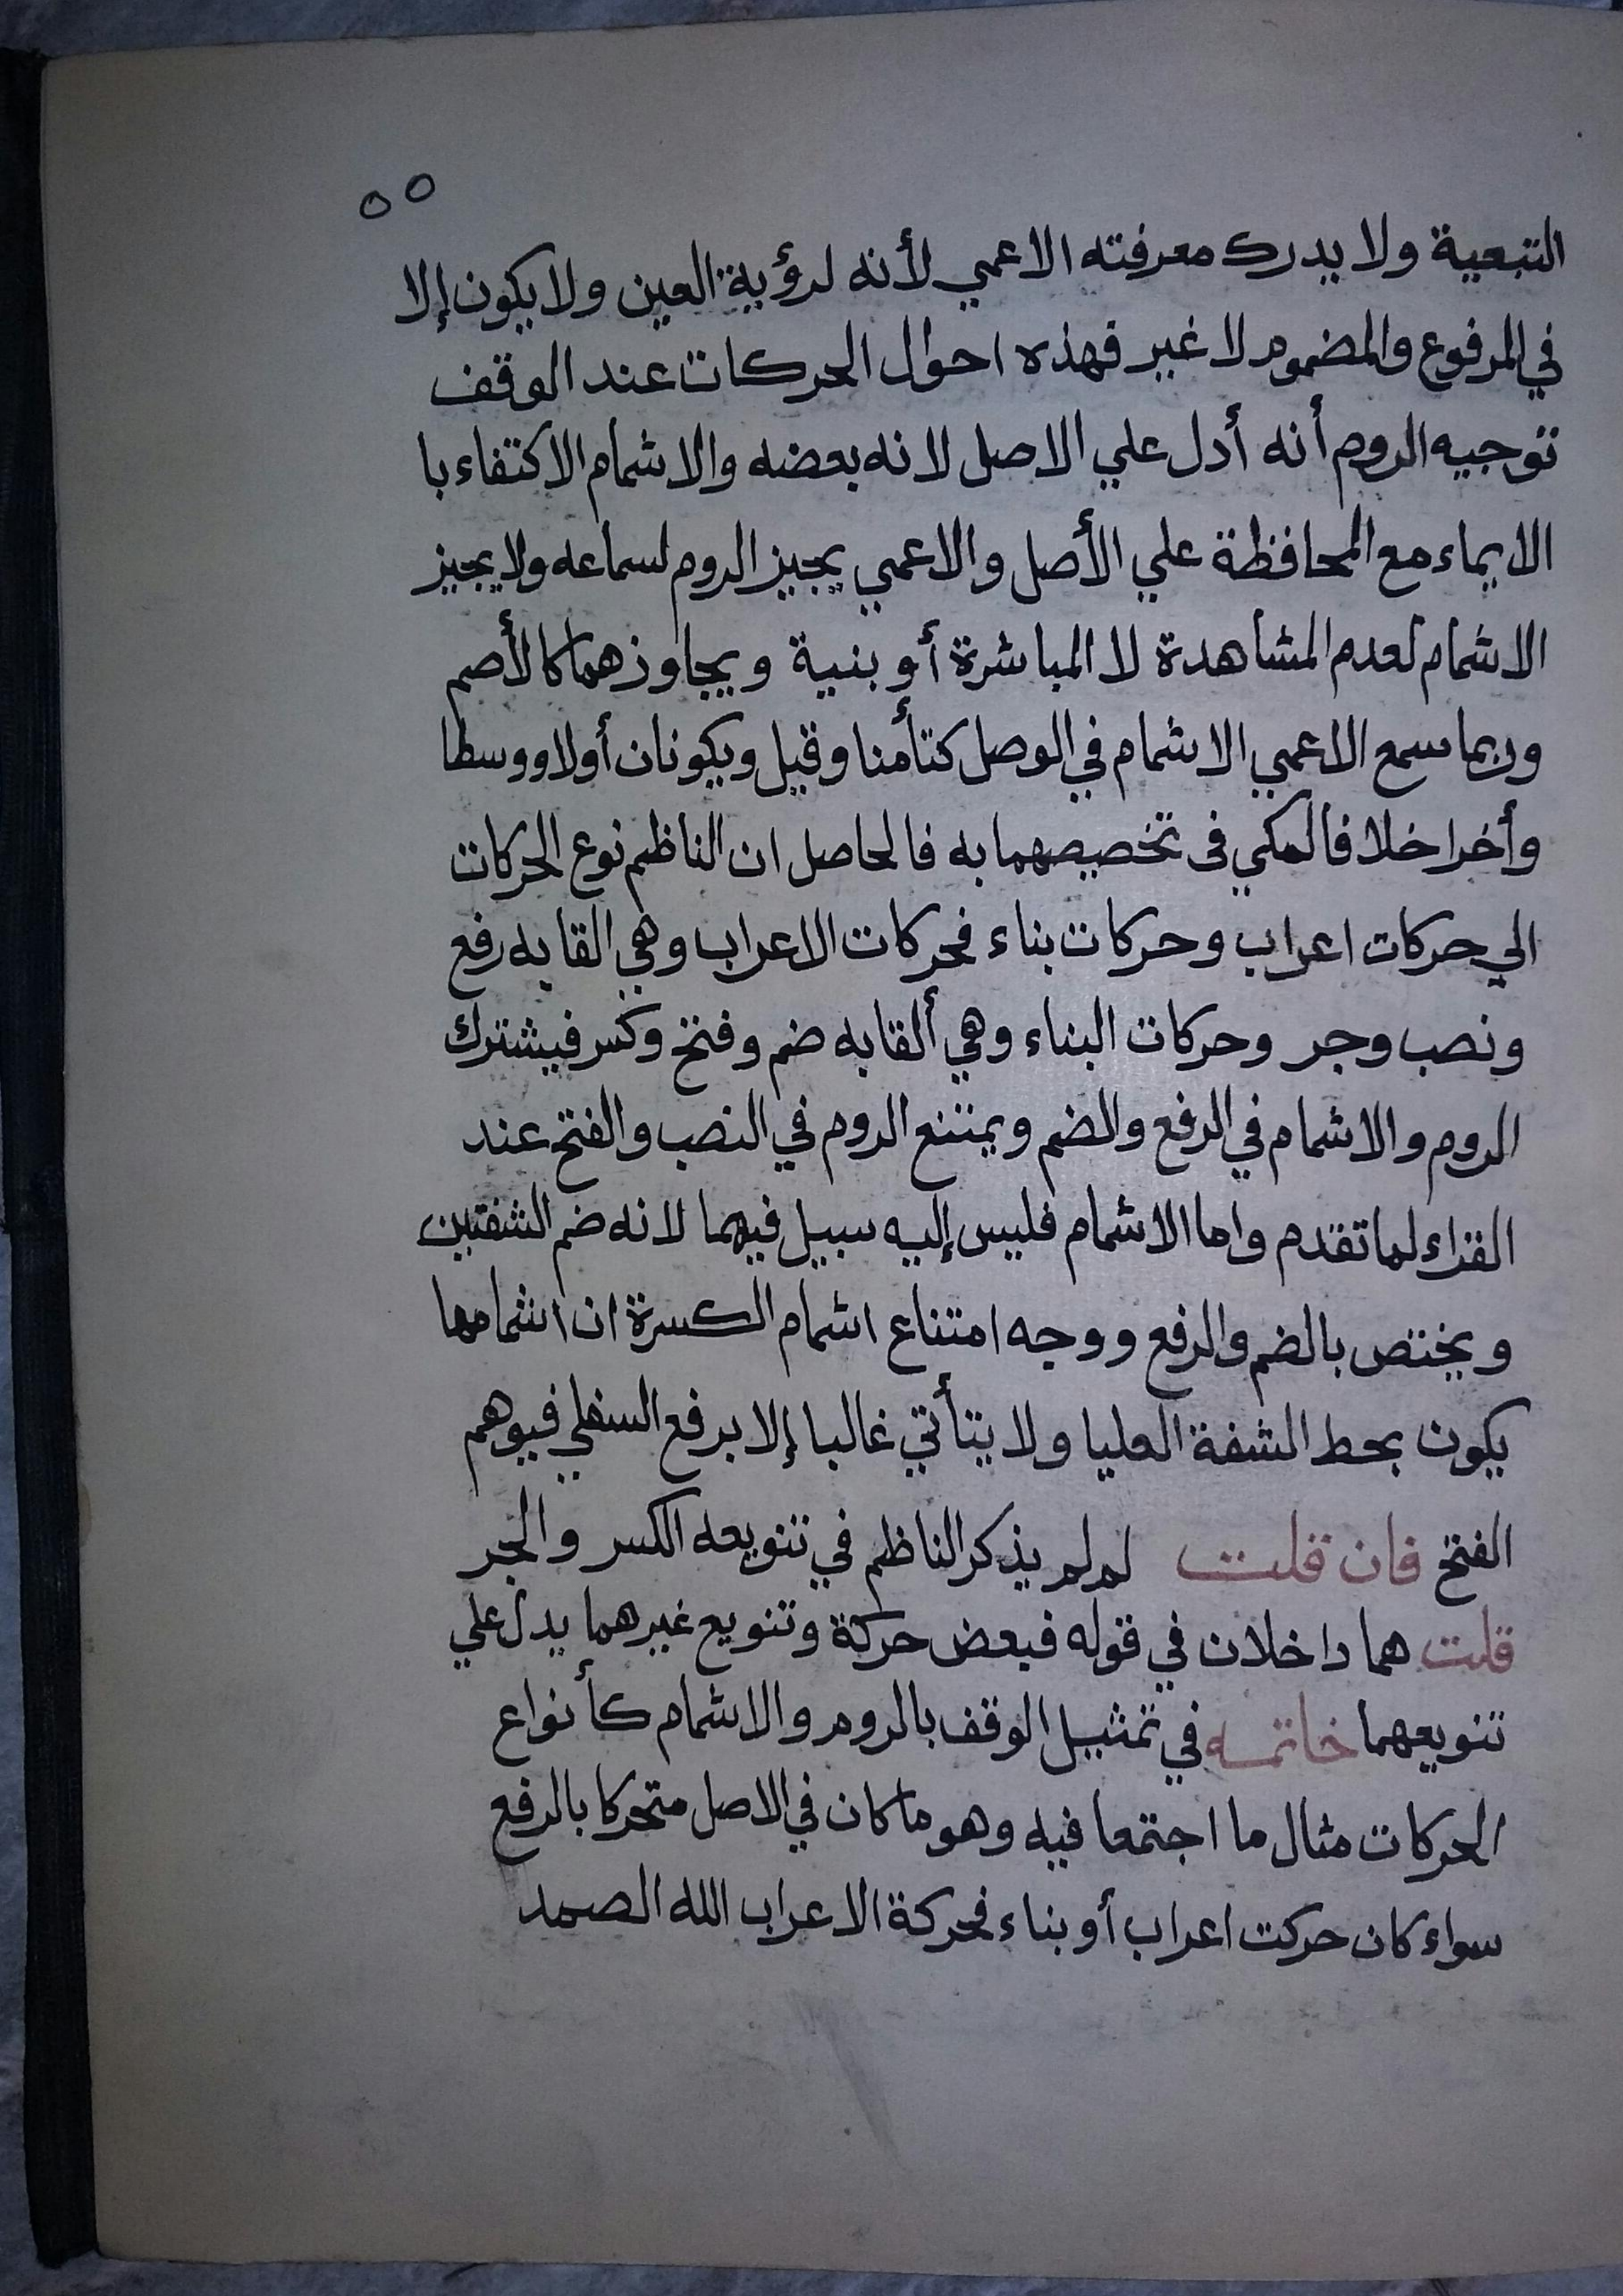 ٥٥
التبعية ولا يدرك معرفته الاعمي لأنه لرؤية العين ولا يكون إلا
في المرفوع والمضموم لا غير فهذه احوال الحركات عند الوقف
توجيه الروم أنه أدل علي الاصل لانه بعضه والاشمام الاكتفاء با
الايماء مع المحافظة علي الأصل والاعمي يجيز الروم لسماعه ولا يجيز
الاشمام لعدم المشاهدة لا المباشرة أو بنية ويجاوزهما كالأصم
وربما سمع الاعمي الاشمام في الوصل كتأمنا وقيل ويكونان أولا ووسطا
وأخرا خلافا لمكي في تخصيصهما به فالحاصل ان الناظم نوع الحركات
الي حركات اعراب وحركات بناء فحركات الاعراب وهي القابه رفع
ونصب وجر وحركات البناء وهي ألقابه ضم وفتح وكسر فيشترك
الروم والاشمام في الرفع والضم ويمتنع الروم في النصب والفتح عند
القراء لما تقدم واما الاشمام فليس إليه سبيل فيهما لانه ضم الشفتين
ويختص بالضم والرفع ووجه امتناع اشمام الكسرة ان اشمامها
يكون بحط الشفة العليا ولا يتأتي غالبا إلا برفع السفلي فيوهم
الفتح فان قلت لم لم يذكر الناظم في تنويعه الكسر والجر
قلت هما داخلان في قوله فبعض حركة وتنويع غيرهما يدل علي
تنويعهما خاتمه في تمثيل الوقف بالروم والاشمام كأنواع
الحركات مثال ما اجتمعا فيه وهو ما كان في الاصل متحركا بالرفع
سواء كان حركت اعراب أو بناء فحركة الاعراب الله الصمد